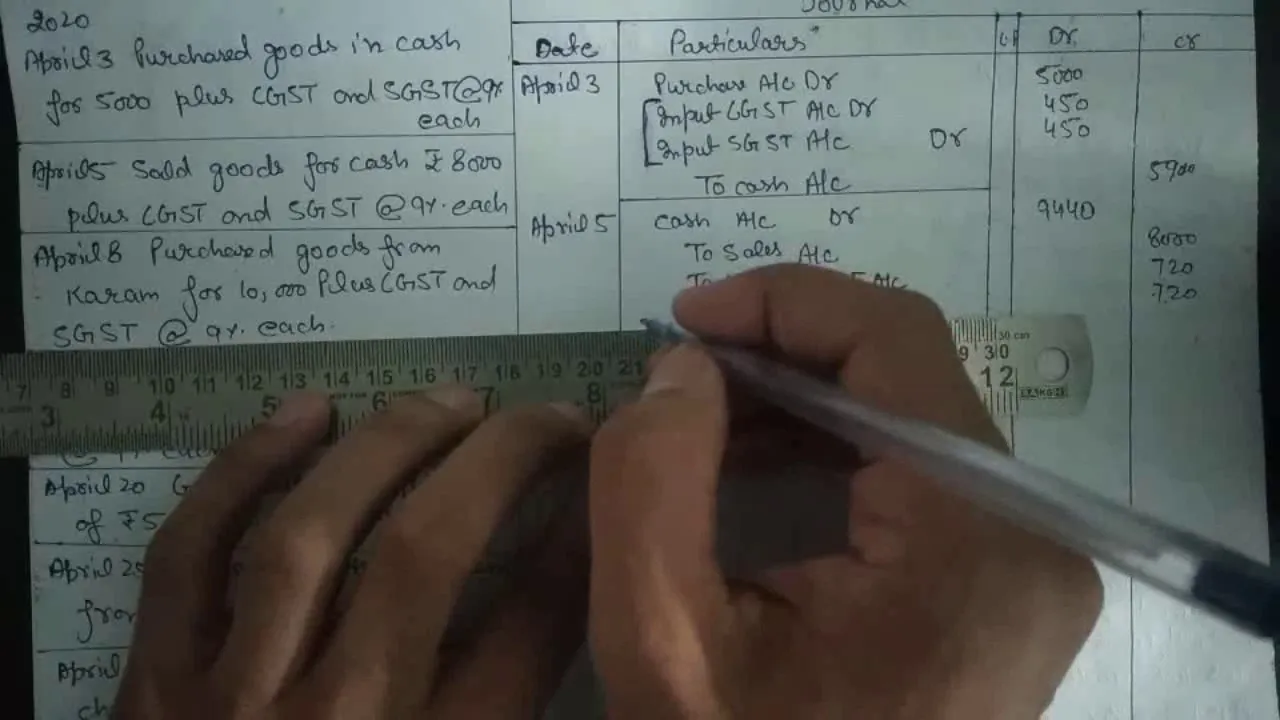 Journal
2020
April 3 Purchased goods in cash
for 5000 plus CGST and SGST @ 9%
each
April 5 Sold goods for cash ₹ 8000
plus CGST and SGST @ 9%. each
April 8 Purchased goods from
Karam for 10,000 Plus CGST and
SGST @ 9%. each.
April 20 G
of ₹5
April 25
from
April
ch
Date Particulars Dr. cr
April 3 Purchase A/c Dr 5000
Input CGST A/c Dr 450
Input SGST A/c Dr 450
To cash A/c 5900
April 5 cash A/c Dr 9440
To Sales A/c 8000
To A/c 720
720
7 8 9 10 11 12 13 14 15 16 17 18 19 20 21 9 30 30 cm
3 4 5 6 7 8 12